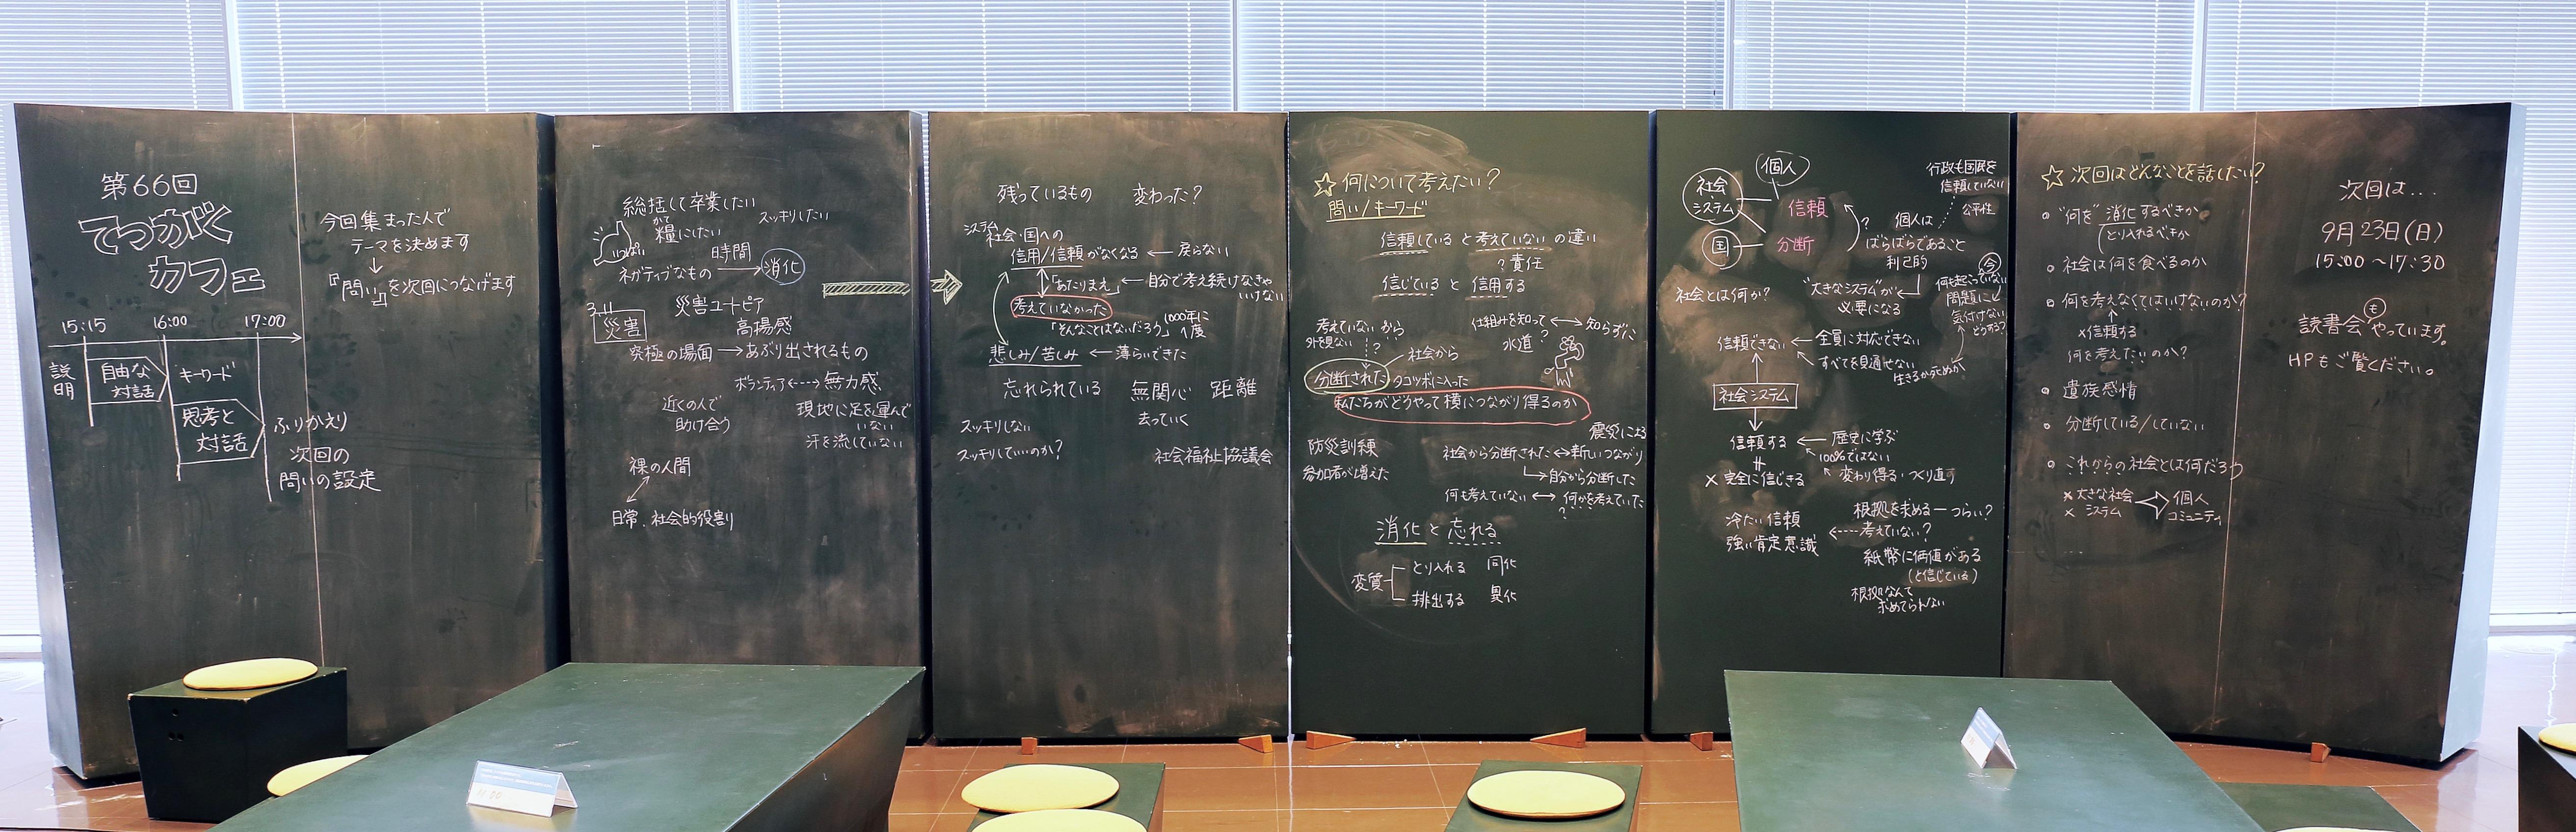 第66回
てつがく
カフェ
15:15 16:00 17:00
説明
自由な
対話
キーワード
思考と
対話
ふりかえり
次回の
問いの設定
今回集まった人で
テーマを決めます
↓
『問い』を次回につなげます
総括して卒業したい
スッキリしたい
かて
糧にしたい
いっぱい
時間
ネガティブなもの → 消化
災害ユートピア
3.11
災害
高揚感
究極の場面 → あぶり出されるもの
ボランティア ←→ 無力感
近くの人で
助け合う
現地に足を運んで
いない
汗を流していない
裸の人間
日常、社会的役割
残っているもの 変わった?
システム
社会・国への
信用/信頼がなくなる ← 戻らない
「あたりまえ」 ← 自分で考え続けなきゃ
いけない
考えていなかった
「そんなことはないだろう」 1000年に
1度
悲しみ/苦しみ ← 薄らいできた
忘れられている 無関心 距離
去っていく
スッキリしない
スッキリしていいのか?
社会福祉協議会
☆何について考えたい?
問い/キーワード
信頼していると考えていないの違い
? 責任
信じていると信用する
考えていないから
外を見ない
?
仕組みを知って ←→ 知らずに
水道 ?
社会から
分断された タコツボに入った
私たちがどうやって横につながり得るのか
震災による
防災訓練
参加者が増えた
社会から分断された ↔ 新しいつながり
→自分から分断した
何も考えていない ↔ 何かを考えていた
?
消化と忘れる
変質
とり入れる 同化
排出する 異化
個人
社会
システム
国
信頼
分断
?
行政も国民を
信頼していない
公平性
個人は
ばらばらであること
利己的
社会とは何か?
"大きなシステム"が
必要になる
今
何も起こっていない
問題に
気付けない
どうする?
信頼できない ← 全員に対応できない
すべてを見通せない
生きるか死ぬか
社会システム
信頼する ← 歴史に学ぶ
100%ではない
変わり得る・つくり直す
× 完全に信じきる
冷たい信頼
強い肯定意識
根拠を求める ー つらい?
考えていない?
紙幣に価値がある
(と信じている)
根拠なんて
求めてられない
☆次回はどんなことを話したい?
"何を"消化するべきか
とり入れるべきか
社会は何を食べるのか
何を考えなくてはいけないのか?
×信頼する
何を考えたいのか?
遺族感情
分断している/していない
これからの社会とは何だろう
× 大きな社会
× システム
個人
コミュニティ
次回は...
9月23日(日)
15:00~17:30
読書会もやっています。
HPもご覧ください。